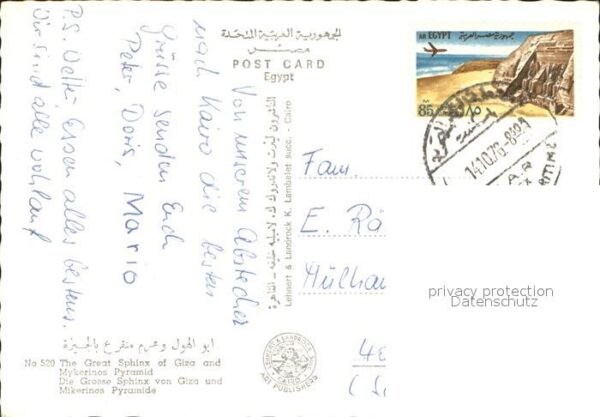 الجمهورية العربية المتحدة
مصر
POST CARD
Egypt
AR EGYPT
جمهورية مصر العربية
85
٨٥
14.10.76-8
Von unserem Abstecher
nach Kairo die besten
Grüsse senden Euch
Peter, Doris, Mario
P.S. Wetter Essen alles bestens.
Wir sind alle wohlauf
Lehnert & Landrock K. Lambelet succ. - Cairo
Fam.
E. Rä
Mülhau
privacy protection
Datenschutz
ابو الهول وهرم منقرع بالجيزة
No 520 The Great Sphinx of Giza and
Mykerinos Pyramid
Die Grosse Sphinx von Giza und
Mikerinos Pyramide
LEHNERT & LANDROCK
CAIRO
ART PUBLISHERS